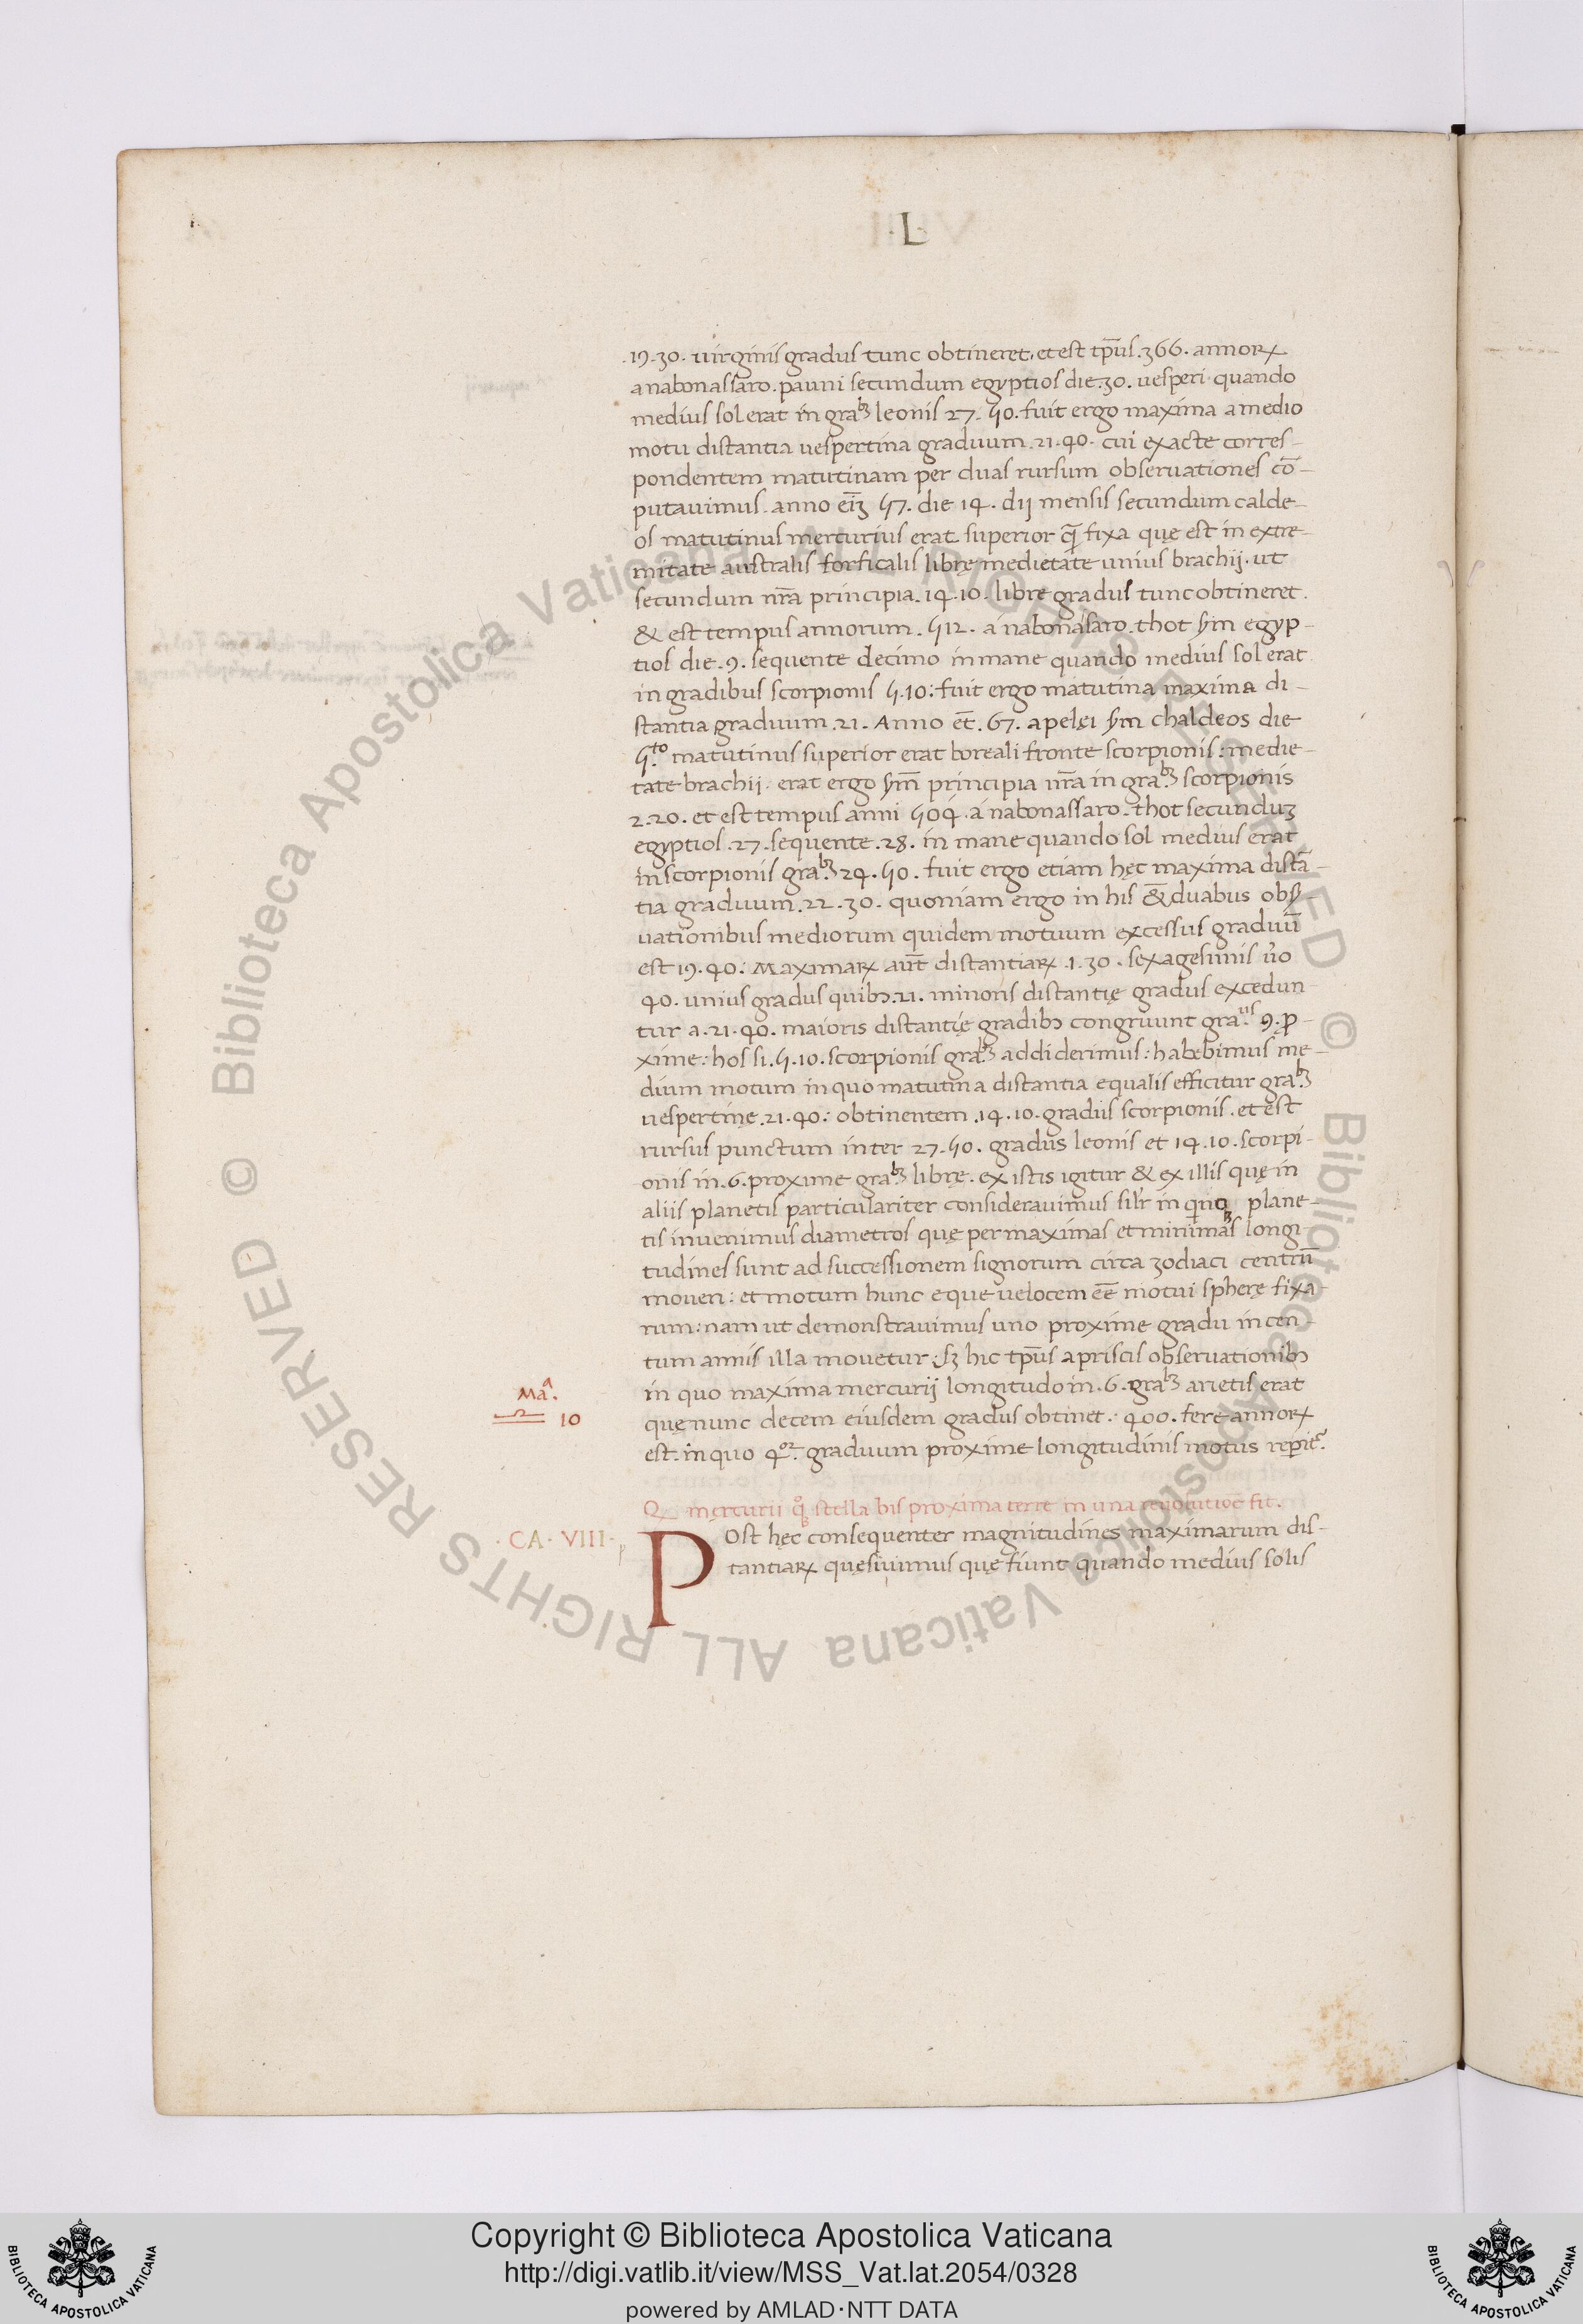 ·L·
.19.30. uirginis gradus tunc obtineret, et est tp̄us .366. annoꝝ
a nabonassaro. pauni secundum egyptios die .30. uesperi· quando
medius sol erat in gra.bꝫ leonis 27. 50. fuit ergo maxima a medio
motu distantia uespertina graduum .21.40. cui exacte corres-
pondentem matutinam per duas rursum obseruationes cō-
putauimus. anno eīꝫ 57. die 14. dij mensis secundum calde-
os matutinus mercurius erat superior q̄ fixa quę est in extre-
mitate australis forficalis librę medietate unius brachij. ut
secundum nr̄a principia. 14.10. libre gradus tunc obtineret.
& est tempus annorum. 512. a nabonasaro. thot s̄m egyp-
tios die .9. sequente decimo in mane quando medius sol erat
in gradibus scorpionis 5.10: fuit ergo matutina maxima di-
stantia graduum .21. Anno et̄. 67. apelęi s̄m chaldeos die
5.to matutinus superior erat boreali fronte scorpionis: medie-
tate brachij. erat ergo s̄m principia nr̄a in gra.bꝫ scorpionis
2.20. et est tempus anni 504. a nabonassaro. thot secunduꝫ
egyptios .27. sequente .28. in mane quando sol medius erat
in scorpionis gra.bꝫ 24.50. fuit ergo etiam hęc maxima distā-
tia graduum .22.30. quoniam ergo in his &̄ duabus obs̄-
uationibus mediorum quidem motuum excessus graduū
est 19.40: Maximaꝝ aut̄ distantiaꝝ .1.30. sexagesimis u̓o
40. unius gradus quibꝰ .21. minoris distantię gradus excedun-
tur a .21.40. maioris distantię gradibꝰ congruunt gra.us 9. ꝓ-
xime: hos si .5.10. scorpionis gra.bꝫ addiderimus: habebimus me-
dium motum in quo matutina distantia equalis efficitur gra.bꝫ
uespertinę .21.40: obtinentem .14.10. gradus scorpionis. et est
rursus punctum inter 27.50. gradus leonis et 14.10. scorpi-
onis in .6. proxime gra.bꝫ librę. ex istis igitur & ex illis quę in
aliis planetis particulariter considerauimus sil̓r in quinqꝫ plane-
tis inuenimus diametros quę per maximas et minimas longi-
tudines sunt ad successionem signorum circa zodiaci centrū
moueri: et motum hunc eque uelocem eē motui spherę fixa-
rum: nam ut demonstrauimus uno proxime gradu in cen-
tum annis illa mouetur: sꝫ hic tp̄us a priscis obseruationibꝰ
in quo maxima mercurij longitudo in .6. gra.bꝫ arietis erat
quę nunc decem eiusdem gradus obtinet: 400. fere annoꝝ
est. in quo 4.or graduum proxime longitudinis motus rep̱it̓.
Ma.a
♎ 10
Q mercurii qͦ stella bis proxima terrę in una reuolutiōe fit.
·CA·VIII·
POst hęc consequenter magnitudines maximarum dis-
tantiaꝝ quęsiuimus quę fiunt quando medius solis
Biblioteca Apostolica Vaticana ALL RIGHTS RESERVED ©
Biblioteca Apostolica Vaticana ALL RIGHTS RESERVED ©
Copyright © Biblioteca Apostolica Vaticana
http://digi.vatlib.it/view/MSS_Vat.lat.2054/0328
powered by AMLAD·NTT DATA
BIBLIOTECA APOSTOLICA VATICANA
BIBLIOTECA APOSTOLICA VATICANA